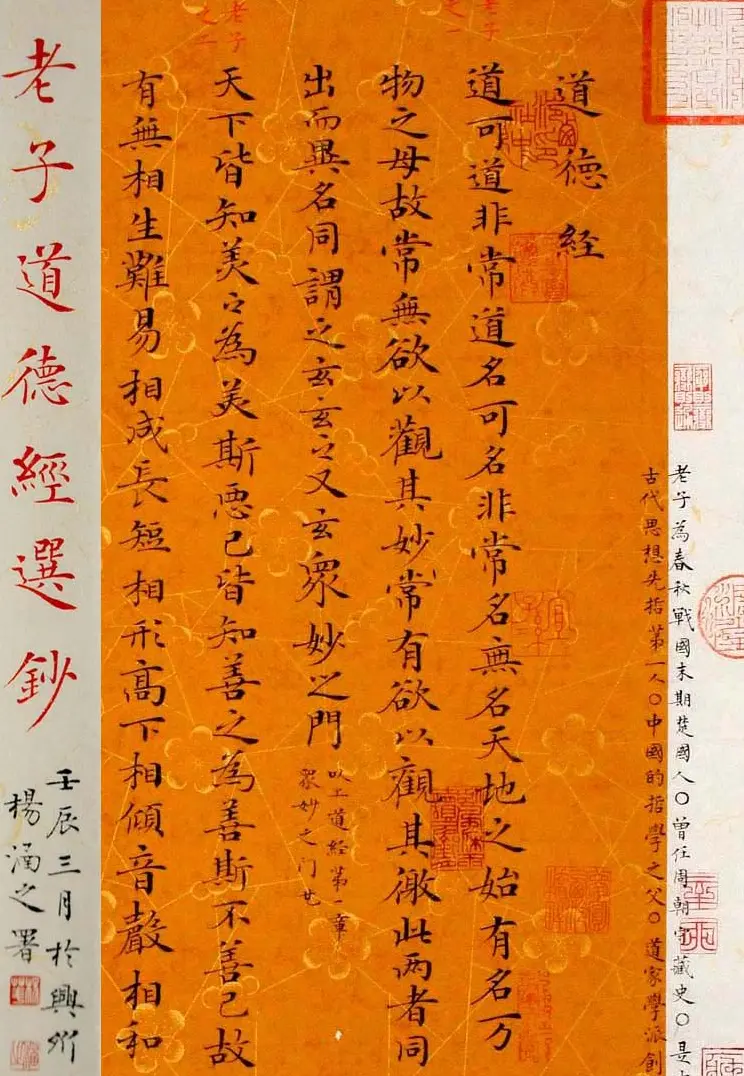 老子為春秋戰國末期楚國人〇曾任周朝守藏史〇是
古代思想先哲第一人〇中國的哲學之父〇道家學派創
道德經
老子
之一
道可道非常道名可名非常名無名天地之始有名万
物之母故常無欲以觀其妙常有欲以觀其徼此两者同
出而異名同謂之玄玄之又玄眾妙之門
以上道經第一章
眾妙之门也
老子
之二
天下皆知美之為美斯惡已皆知善之為善斯不善已故
有無相生難易相成長短相形高下相傾音聲相和
老子道德經選鈔
壬辰三月於興州
楊涵之署